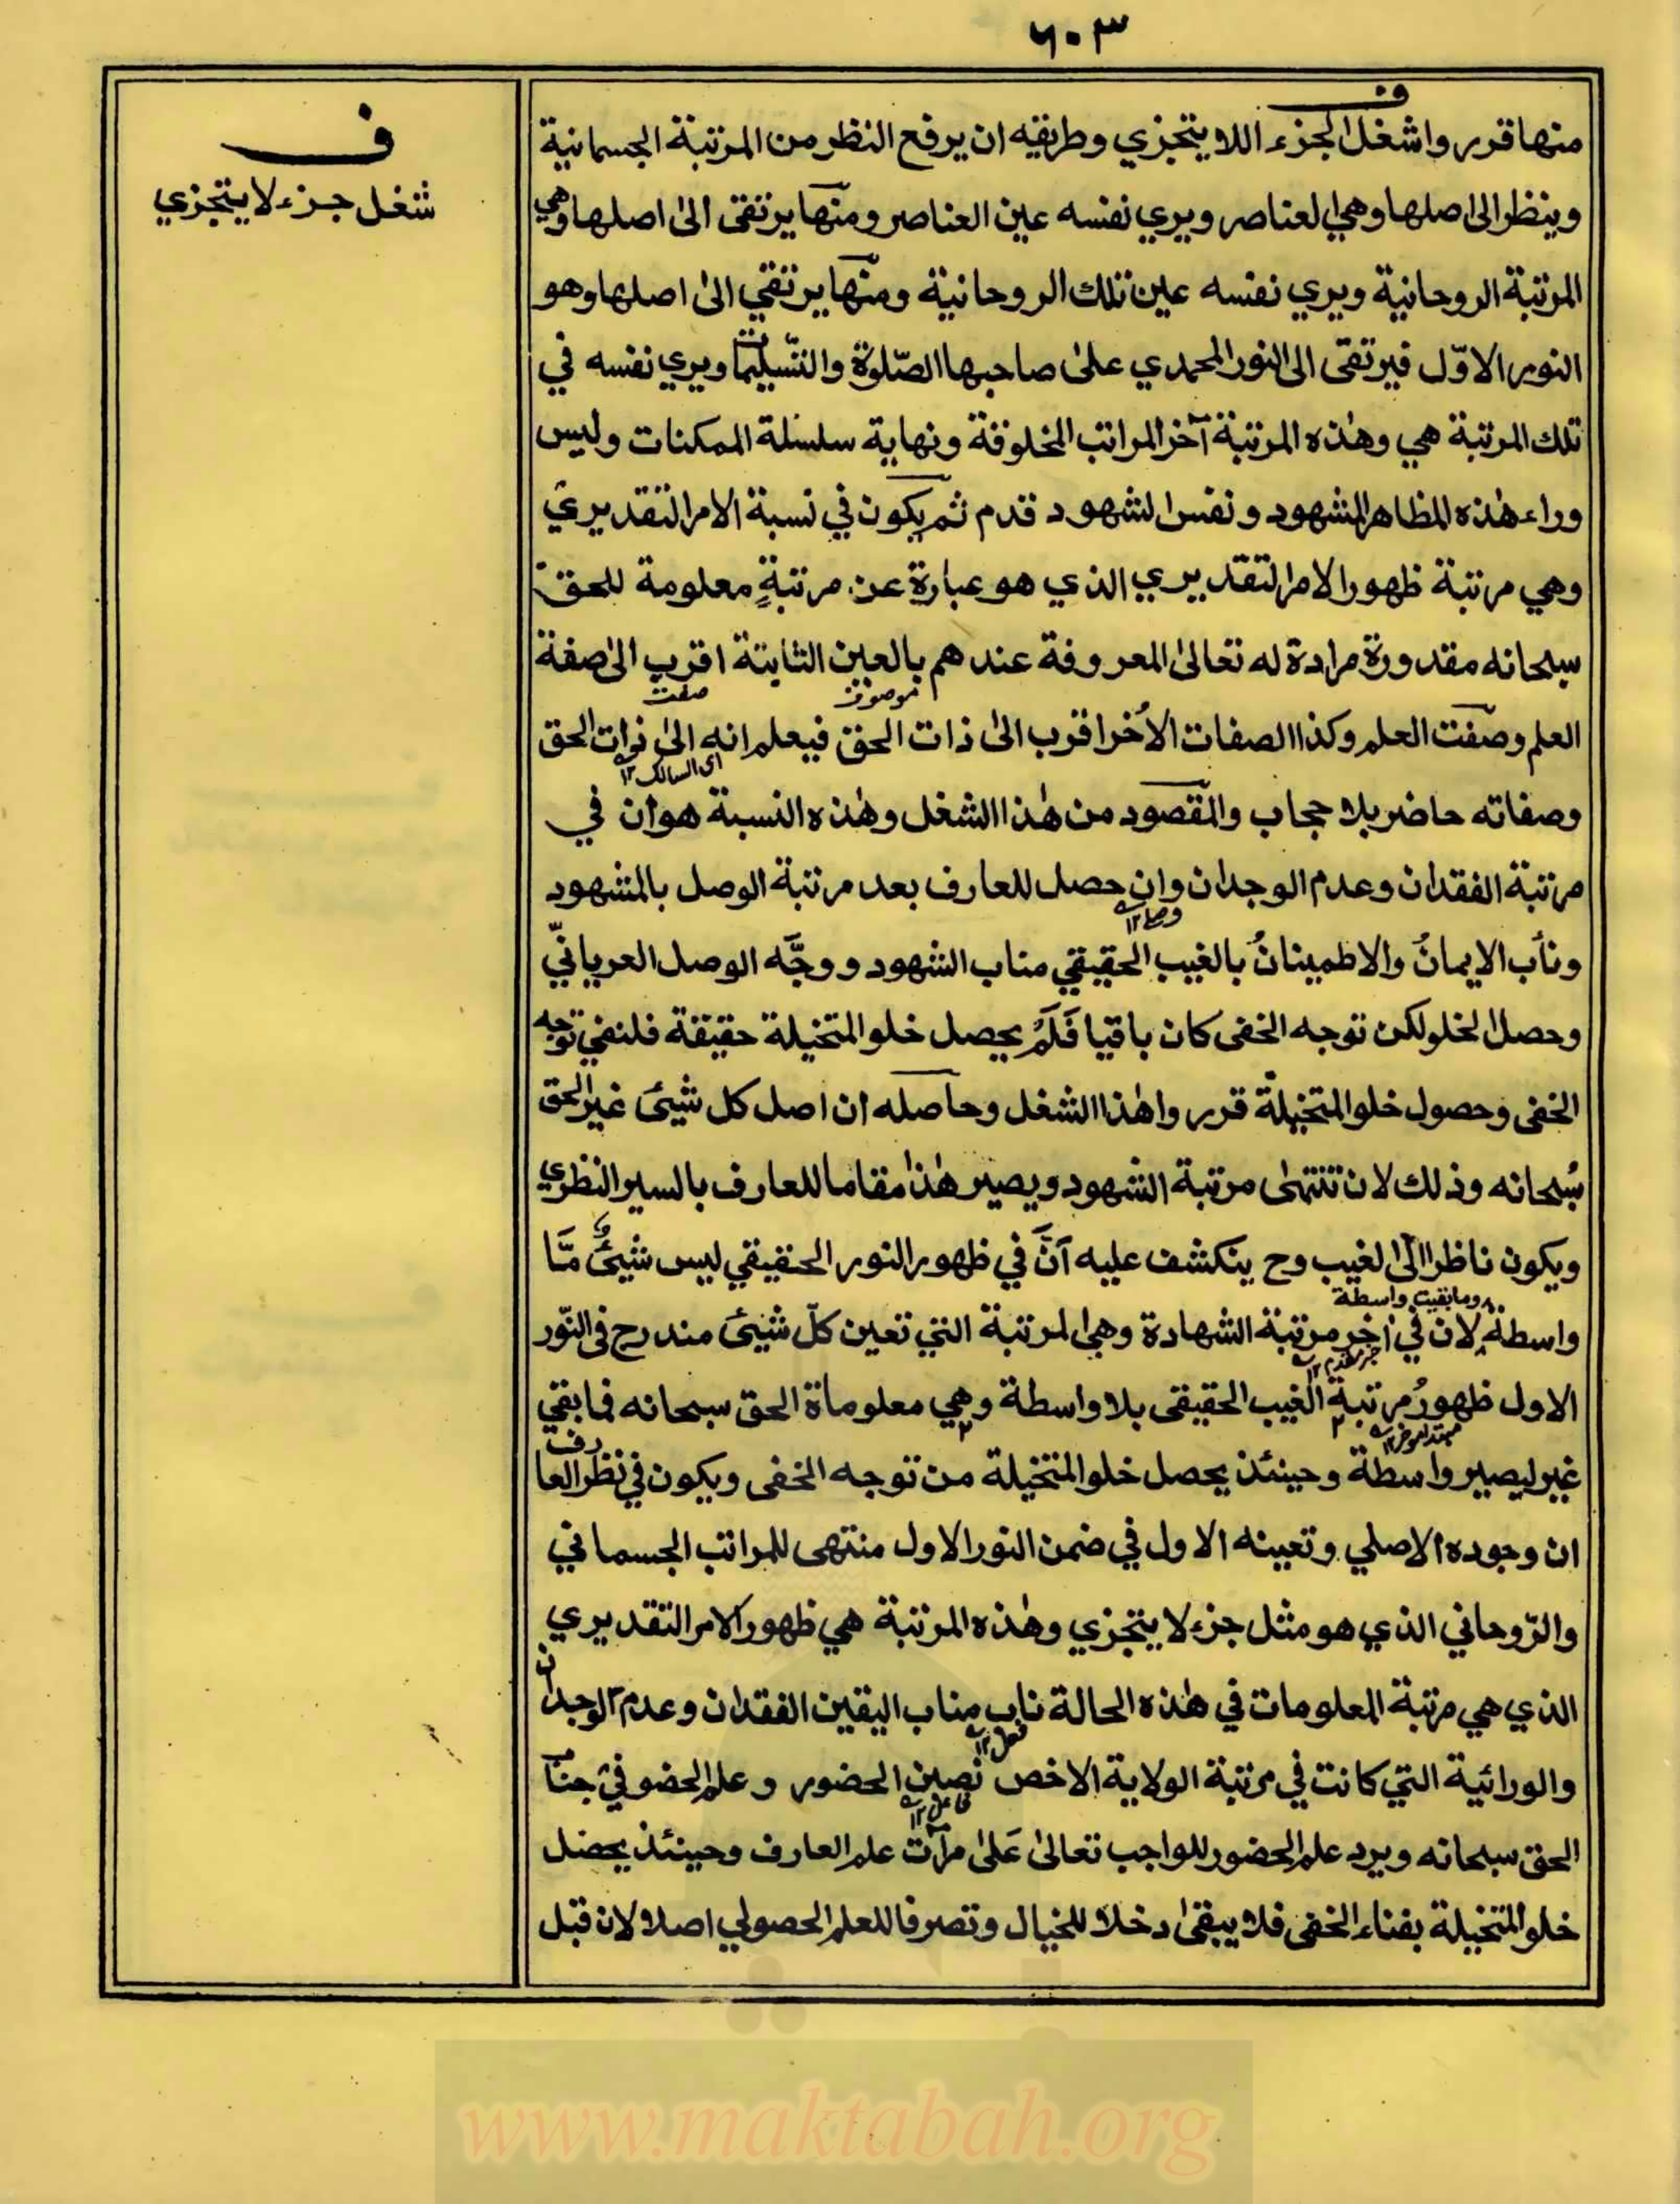 ۶۰۳
ف
شغل جزء لا يتجزي
ف
منها قرروا شغل الجزء اللا يتجزي وطريقه ان يرفع النظر من المرتبة الجسمانية
وينظر الى اصلها وهي العناصر ويري نفسه عين العناصر ومنها يرتقى الىٰ اصلها وهي
المرتبة الروحانية ويري نفسه عين تلك الروحانية ومنها يرتقي الىٰ اصلها وهو
النور الاوّل فيرتقى الى النور المحمدي علىٰ صاحبها الصّلوٰة والتّسليمات ويري نفسه في
تلك المرتبة هي وهٰذه المرتبة آخر المراتب المخلوقة ونهاية سلسلة الممكنات وليس
وراء هٰذه المظاهر المشهود ونفس الشهود قدم ثم يكون في نسبة الامر التقديري
وهي مرتبة ظهور الامر التقديري الذي هو عبارة عن مرتبةٍ معلومة للحق
سبحانه مقدورة مرادة له تعالىٰ المعروفة عندهم بالعين الثابتة اقرب الىٰ صفة
موصوف صفت
العلم وصفت العلم وكذا الصفات الأخر اقرب الىٰ ذات الحق فيعلم انه الىٰ ذات الحق
اى السالك ۱۲
وصفاته حاضر بلا حجاب والمقصود من هٰذا الشغل وهٰذه النسبة هو ان في
مرتبة الفقدان وعدم الوجدان وان حصل للعارف بعد مرتبة الوصل بالمشهود
ونأب الايمانُ والاطمينانُ بالغيب الحقيقي مناب الشهود ووجَّه الوصل العرياني
وحصل الخلو لكن توجه الخفى كان باقيا فَلَمْ يحصل خلو المتخيلة حقيقة فلنفي توجه
الخفى وحصول خلو المتخيلة قرروا هٰذا الشغل وحاصله ان اصل كل شيئ غير الحق
سُبحانه وذلك لان تنتهى مرتبة الشهود ويصير هٰذا مقاما للعارف بالسير النظري
ويكون ناظرا الى الغيب وح ينكشف عليه أنَّ في ظهور النور الحقيقي ليس شيئٌ مّا
وما بقيت واسطة
واسطة لان في اٰخر مرتبة الشهادة وهي المرتبة التي تعين كلّ شيئ مندرج فى النّور
خبر مقدم ۱۲
الاول ظهورُ مرتبة الغيب الحقيقى بلا واسطة وهي معلوماة الحق سبحانه فما بقي
مبتدا موخر ۱۲
غير ليصير واسطة وحينئذ يحصل خلو المتخيلة من توجه الخفى ويكون في نظر العارف
ان وجوده الاصلي وتعينه الاول في ضمن النور الاول منتهى للمراتب الجسماني
والرّوحاني الذي هو مثل جزء لا يتجزي وهٰذه المرتبة هي ظهور الامر التقديري
الذي هي مرتبة المعلومات في هٰذه الحالة ناب مناب اليقين الفقدان وعدم الوجدان
فعل ۱۲
والورائية التي كانت في مرتبة الولاية الاخص نصين الحضور وعلم الحضور في جناب
فاعل ۱۲
الحق سبحانه ويرد علم الحضور للواجب تعالىٰ عَلىٰ مرآت علم العارف وحينئذ يحصل
خلو المتخيلة بفناء الخفى فلا يبقىٰ دخلا للخيال وتصرفا للعلم الحصولي اصلا لان قبل
www.maktabah.org